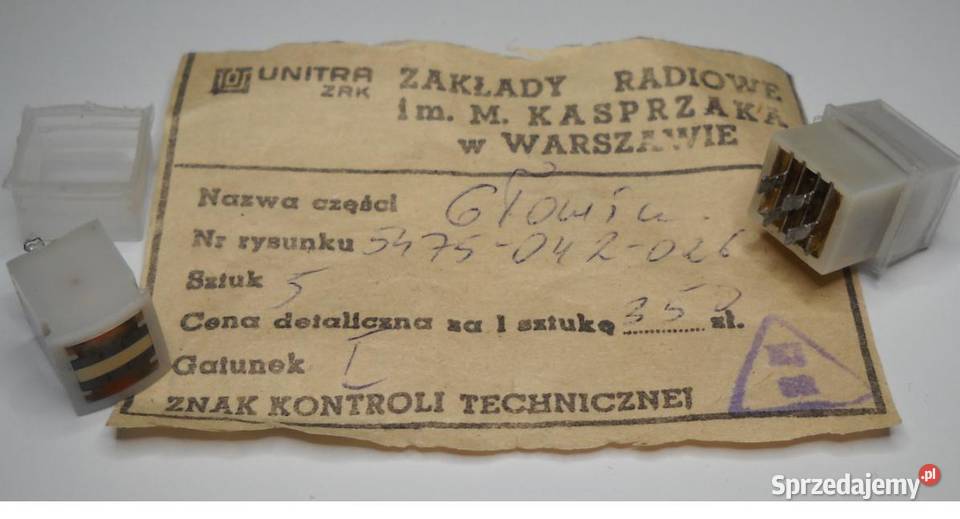 UNITRA
ZRK
ZAKŁADY RADIOWE
im. M. KASPRZAKA
w WARSZAWIE
Nazwa części
Nr rysunku 5475-042-026
Sztuk 5
Cena detaliczna za 1 sztukę 350 zł.
Gatunek I
ZNAK KONTROLI TECHNICZNEJ
Sprzedajemy.pl